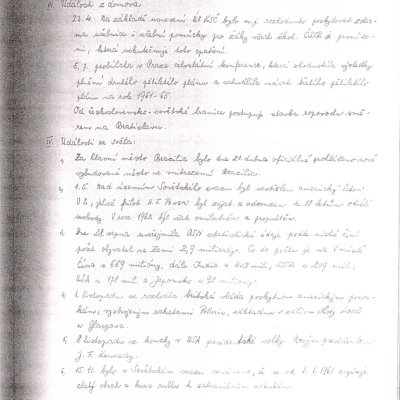 III. Události z domova.
23. 4. Na základě usnesení ÚV KSČ bylo m.j. rozhodnuto poskytovat zdar-
ma učebnice i učební pomůcky pro žáky všech škol. ČSR je první ze-
mí, která uskutečňuje toto opatření.
5. 7. proběhla v Praze celostátní konference, která zhodnotila výsledky
plnění druhého pětiletého plánu a schválila návrh třetího pětiletého
plánu na rok 1961-65.
Od československo-sovětské hranice postupuje stavba ropovodu smě-
rem na Bratislavu.
IV. Události ze světa:
Za hlavní město Brazílie bylo dne 21. dubna oficiálně prohlášeno nově
vybudované město ve vnitrozemí Brasilia.
2, 1. 5. Nad územím Sovětského svazu byl sestřelen americký letoun
U 2, jehož pilot F. Power byl zajat a odsouzen k 10 letům odnětí
svobody. V roce 1962 byl však omilostněn a propuštěn.
3, Dne 28. srpna uveřejnila OSN statistické údaje podle nichž činí
počet obyvatel na Zemi 2,9 miliardy. Co do počtu je na 1. místě
Čína s 669 milióny, dále Indie s 403 mil., SSSR s 209 mil.,
USA s 178 mil. a Japonsko s 92 milióny.
4, 1. listopadu se rozhodla britská vláda poskytnou americkým ponor-
kám, vyzbrojeným raketami Polaris, základnu v zálivu Holy Loch
u Glasgowa.
5, 8. listopadu se konaly v USA presidentské volby. Novým presidentem
J. F. Kennedy.
6, 15. 11. bylo v Sovětském svazu že se od 1. 1. 1961 zvyšuje
zlatý obsah a kurs rublu k zahraničním